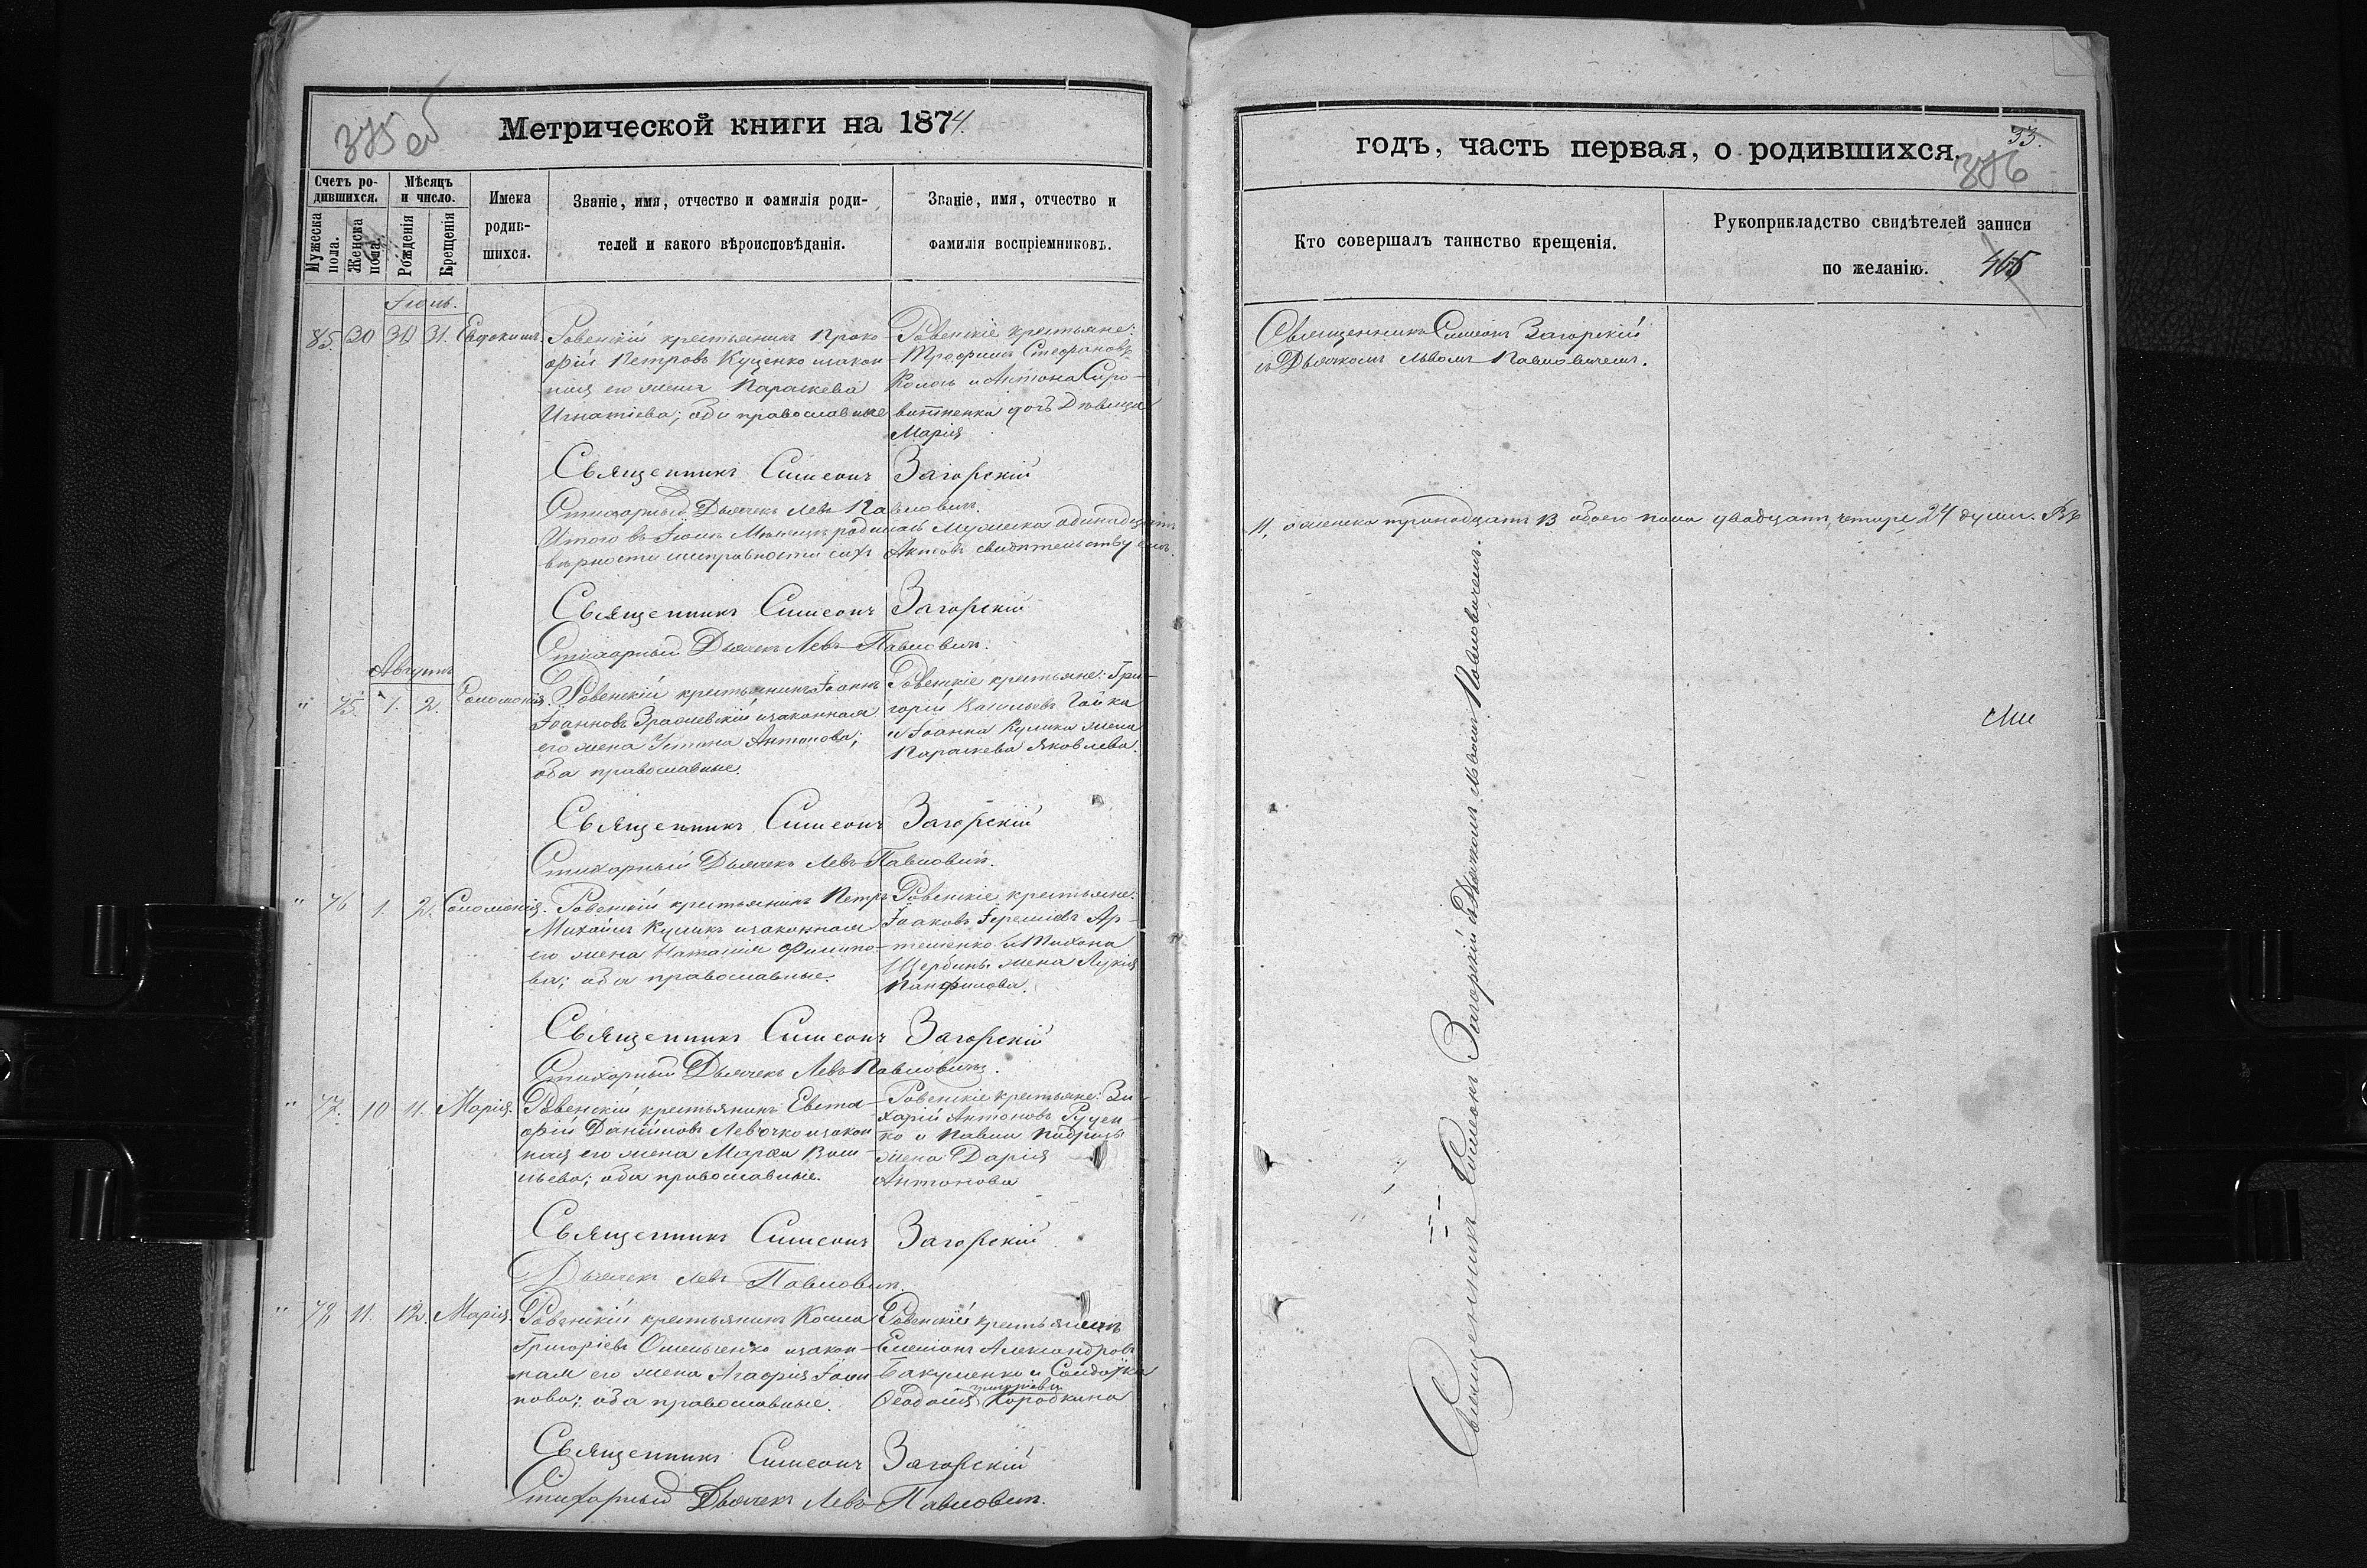 375 об
Метрической книги на 1874.
Счетъ ро-
дившихся.
Мѣсяцъ
и число.
Мужеска
пола.
Женска
пола.
Рожденія
Крещенія
Имена
родив-
шихся.
Званіе, имя, отчество и фамилія роди-
телей и какого вѣроисповѣданія.
Званіе, имя, отчество и
фамилія воспріемниковъ.
Іюль.
85. 30 31. Евдокимъ.
Ровенскій крестьянинъ Проко
фій Петровъ Куценко изакон
ная его жена Параскева
Игнатіева; оба православные
Ровенскіе крестьяне:
Трофимъ Стефановъ
и Антона Сиро-
ватненки дочь Дѣвица
Марія
Священникъ Симеонъ Загорскій
Стихарный Дьячекъ Левъ Павловичъ
Итого въ Іюлѣ Мѣсяцѣ родилось Мужеска одинадцать
вѣрности исправности сихъ Актовъ свидѣтельствуемъ.
Священникъ Симеонъ Загорскій
Стихарный Дьячекъ Левъ Павловичъ.
Августъ
" 75. 1. 2. Соломонія.
Ровенскій крестьянинъ Іоаннъ
Іоанновъ изаконная
его жена Устина Антонова;
оба православные.
Ровенскіе крестьяне: Гри-
горій Васильевъ Гайка
и Іоанна Кулика жена
Параскева Яковлева.
Священникъ Симеонъ Загорскій
Стихарный Дьячекъ Левъ Павловичъ.
" 76 1. 2. Соломонія.
Ровенскій крестьянинъ Петръ
Михайловъ Куликъ изаконная
его жена Наталія Филипо-
ва; оба православные.
Ровенскіе крестьяне:
Іоаковъ Іереміевъ Ар-
теменко и Тихона
Щербины жена Лукія
Панфилова.
Священникъ Симеонъ Загорскій
Стихарный Дьячекъ Левъ Павловичъ.
" 77. 10 11. Марія.
Ровенскій крестьянинъ Евста-
фій Даніиловъ Левочко изакон
ная его жена Марфа Васи-
льева; оба православные.
Ровенскіе крестьяне: За-
харій Антоновъ Руден-
ко и Павла
жена Дарія
Антонова
Священникъ Симеонъ Загорскій
Дьячекъ Левъ Павловичъ
" 78 11. 12. Марія.
Ровенскій крестьянинъ Косма
Григоріевъ Омельченко изакон-
ная его жена Агафія Іоси-
пова; оба православные.
Ровенскій крестьянинъ
Симеонъ Александровъ
Бакуменко и Солдатка
Феодосія Григоріева Короткина
Священникъ Симеонъ Загорскій
Стихарный Дьячекъ Левъ Павловичъ.
годъ, часть первая, о родившихся.
33.
376
Кто совершалъ таинство крещенія.
Рукоприкладство свидѣтелей записи
по желанію.
465
Священникъ Симеонъ Загорскій
съ Дьячкомъ Львомъ Павловичемъ.
11, а женска тринадцать 13 обоего пола двадцать четыре 24 души. Въ
Священникъ Симеонъ Загорскій съ Дьячкомъ Львомъ Павловичемъ.